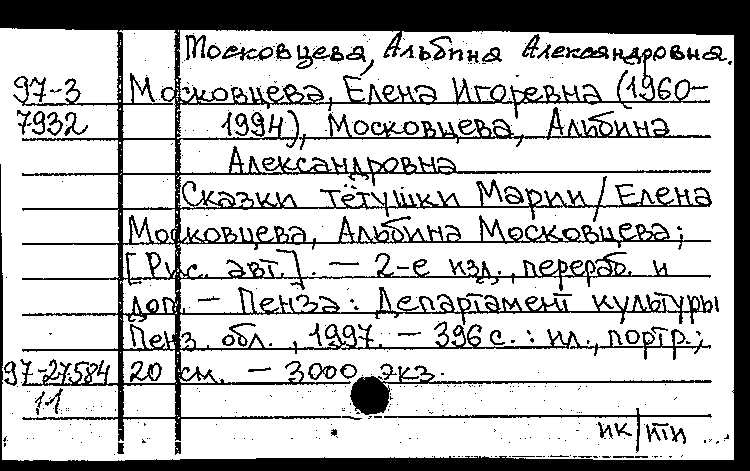 Московцева, Альбина Александровна.
97-3 Московцева, Елена Игоревна (1960-
7932 1994), Московцева, Альбина
Александровна
Сказки тётушки Марии / Елена
Московцева, Альбина Московцева;
[Рис. авт.]. — 2-е изд., перераб. и
доп. — Пенза: Департамент культуры
Пенз. обл., 1997. — 396 с. : ил., портр.;
97-27584 20 см. — 3000 экз.
11
ик/ити